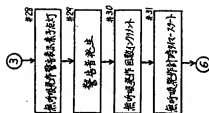 ③
#28
無呼吸発作警告表示素子点灯
#29
警告音発生
#30
無呼吸発作回数インクリメント
#31
無呼吸発作計時タイマースタート
⑥